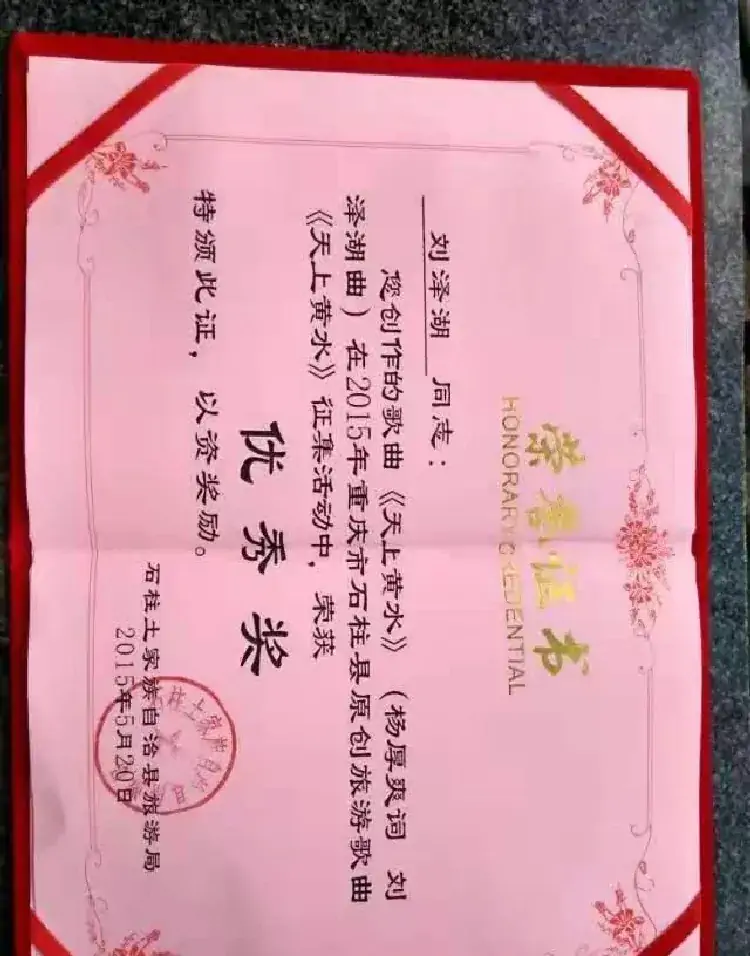 荣誉证书
HONORARY CREDENTIAL
刘泽湖 同志：
您创作的歌曲《天上黄水》（杨厚爽词 刘
泽湖曲）在2015年重庆市石柱县原创旅游歌曲
《天上黄水》征集活动中，荣获
优秀奖
特颁此证，以资奖励。
石柱土家族自治县旅游局
2015年5月20日